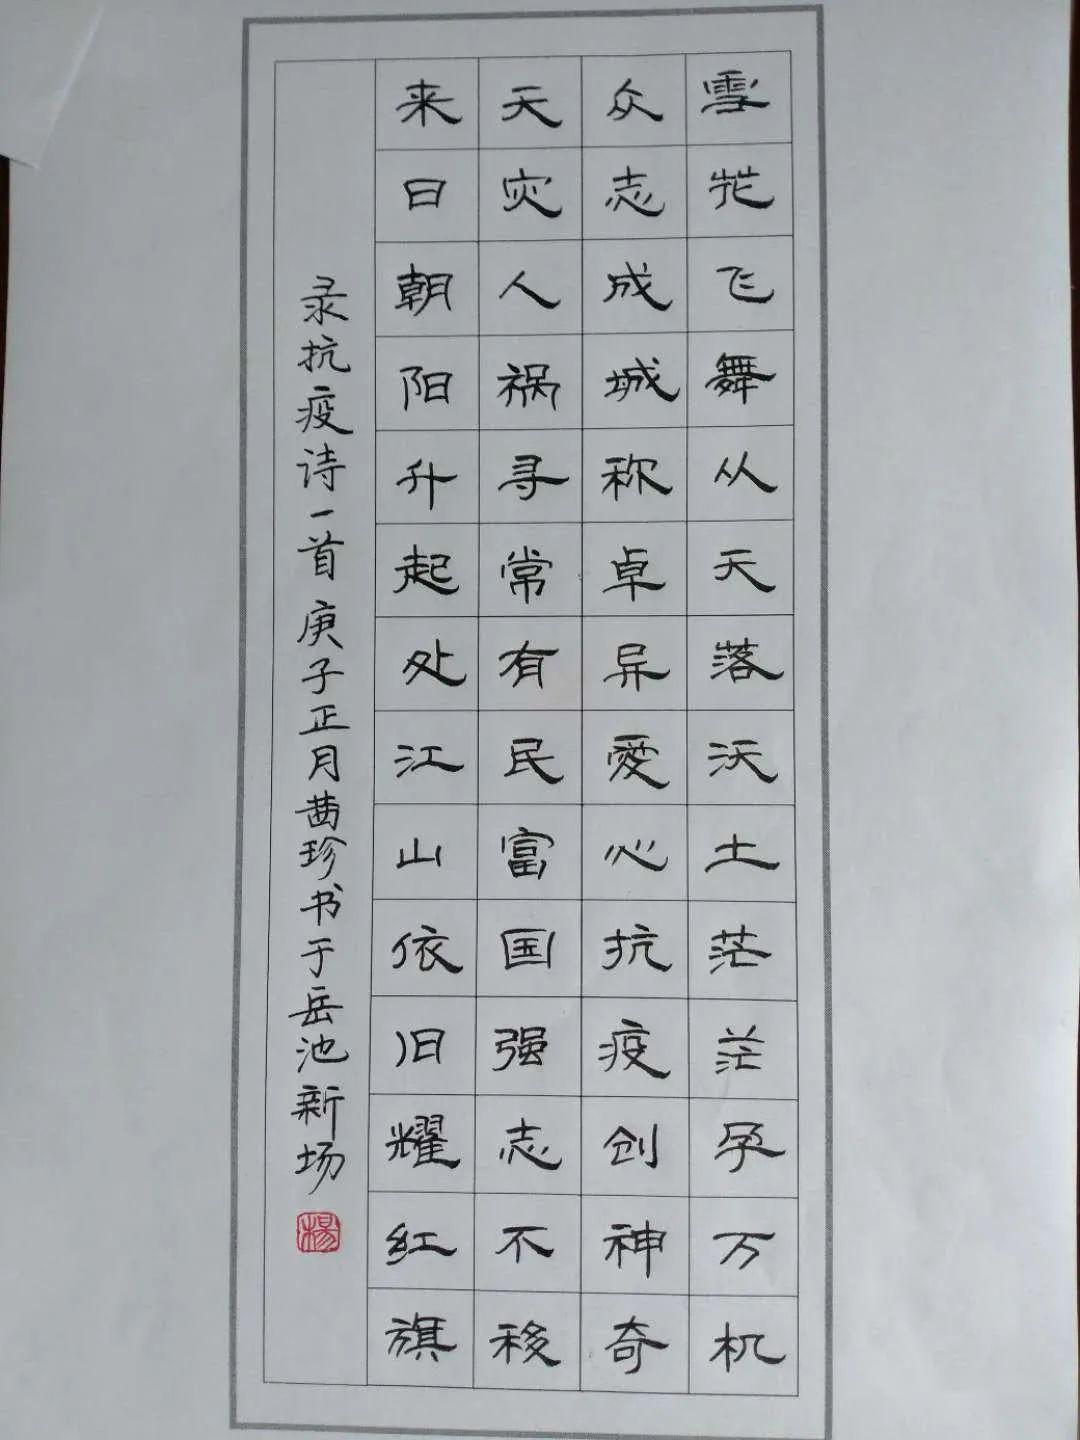 雪花飞舞从天落沃土茫茫孕万机
众志成城称卓异爱心抗疫创神奇
天灾人祸寻常有民富国强志不移
来日朝阳升起处江山依旧耀红旗
录抗疫诗一首庚子正月茜珍书于岳池新场
楊